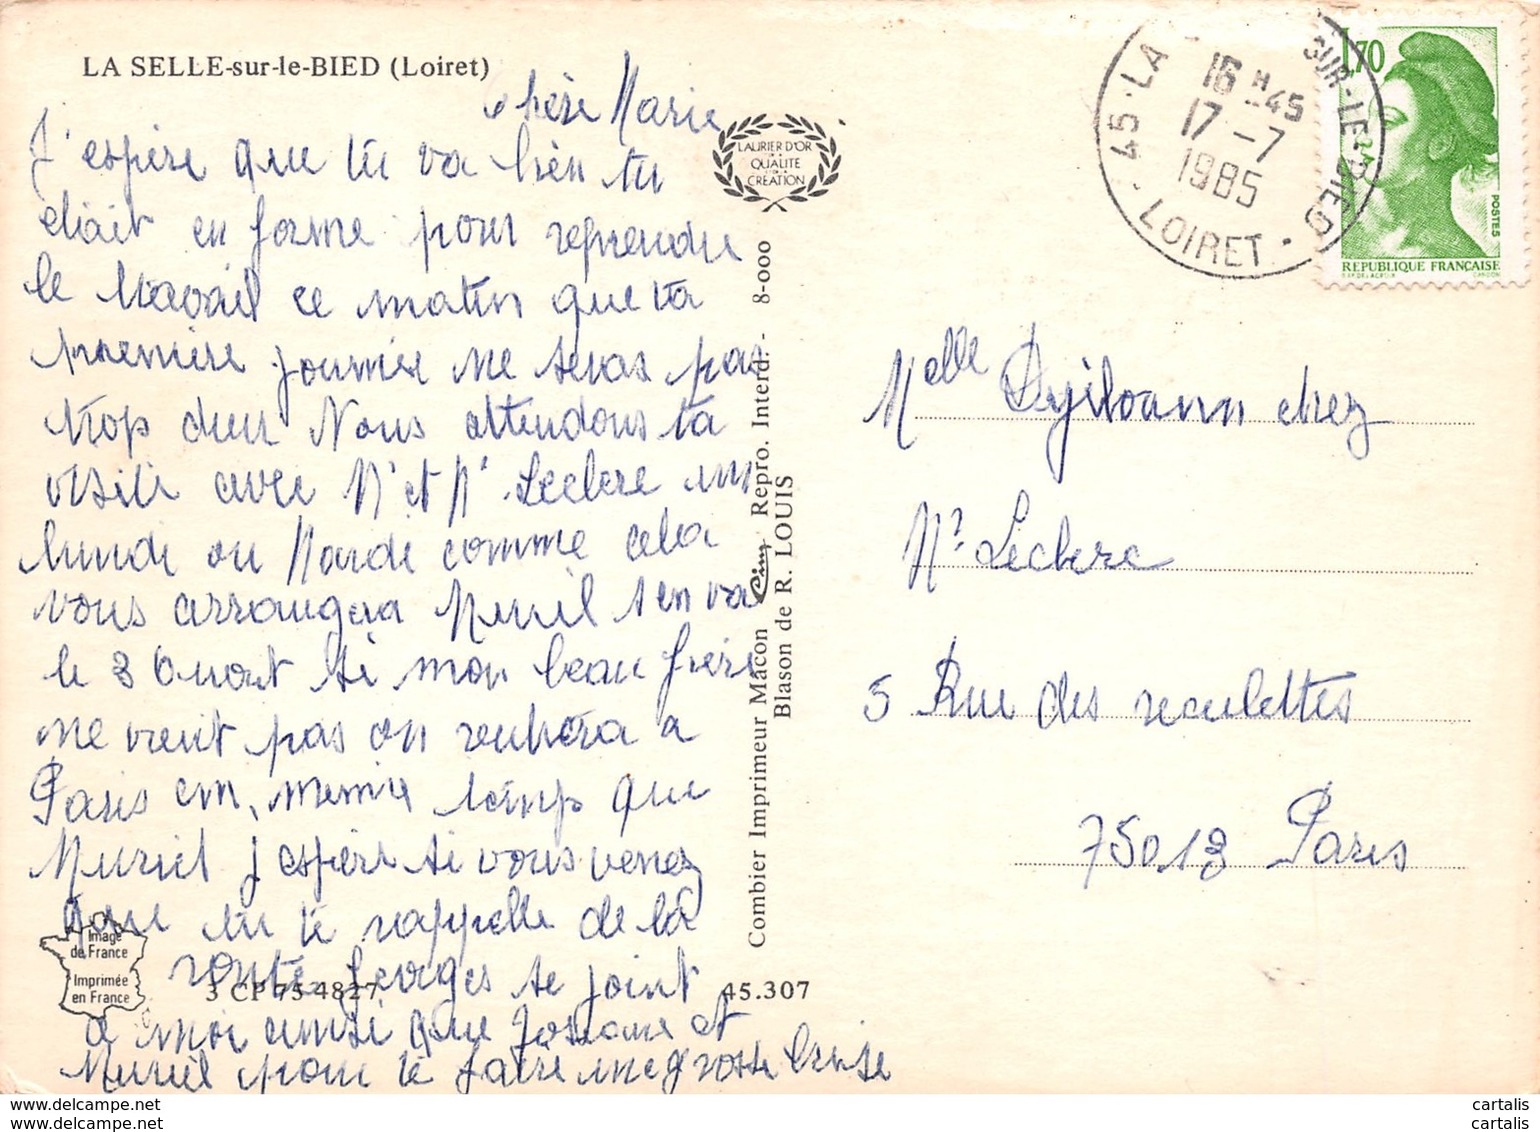 LA SELLE-sur-le-BIED (Loiret)
chère Marie
J'espère que tu va bien tu
était en forme pour reprendre
le travail ce matin que ta
première journée ne seras pas
trop dur Nous attendons ta
visite avec Mr et Me Leclerc un
lundi ou Mardi comme cela
vous arrangera Muriel s'en va
le 3 Aout si mon beau frère
ne vient pas on rentrera a
Paris en même temps que
Muriel J espère si vous venez
que tu te rappelle de la
route Georges se joint
a moi ainsi que Josiane et
Muriel pour te faire une grosse bise
LAURIER D'OR
DE LA
QUALITÉ
CRÉATION
Combier Imprimeur Mâcon Cim Repro. Interd. - 8-000
Blason de R. LOUIS
Image
de France
Imprimée
en France
3 CP 75 4827
45.307
45 - LA SUR-LE-BIED
16 H 45
17 -7
1985
LOIRET
1,70
POSTES
REPUBLIQUE FRANÇAISE
Melle chez
Mr Leclerc
5 Rue des reculettes
75013 Paris
cartalis
cartalis
cartalis
cartalis